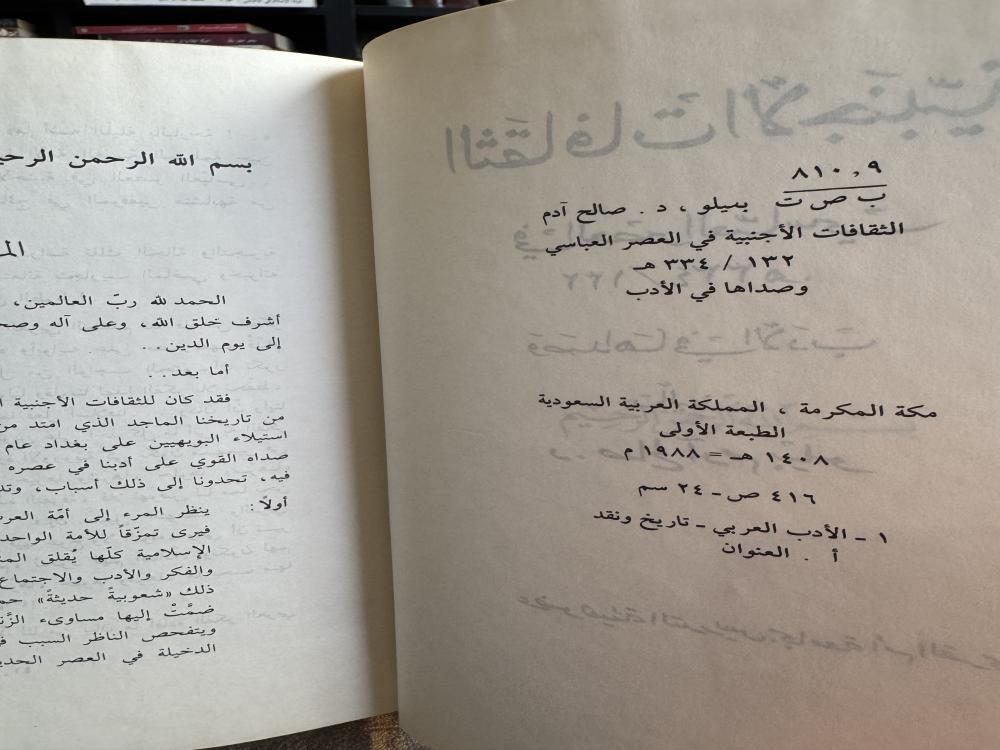 ٨١٠,٩
ب ص ت بيلو ، د . صالح آدم
الثقافات الأجنبية في العصر العباسي
١٣٢ / ٣٣٤ هـ
وصداها في الأدب
مكة المكرمة ، المملكة العربية السعودية
الطبعة الأولى
١٤٠٨ هـ = ١٩٨٨ م
٤١٦ ص - ٢٤ سم
١ - الأدب العربي - تاريخ ونقد
أ . العنوان
بسم الله الرحمن
الحمد لله ربّ العالمين،
أشرف خلق الله، وعلى آله
إلى يوم الدين..
أما بعد..
فقد كان للثقافات الأجنبية
من تاريخنا الماجد الذي امتد
استيلاء البويهيين على بغداد عام
صداه القوي على أدبنا في عصره
فيه، تحدونا إلى ذلك أسباب،
أولاً: ينظر المرء إلى أمّة
فيرى تمزّقاً للأمة
الإسلامية كلّها يُقلق
والفكر والأدب
ذلك «شعوبيةً حديثةً»
ضمّتْ إليها مساوىء
ويتفحص الناظر السبب
الدخيلة في العصر